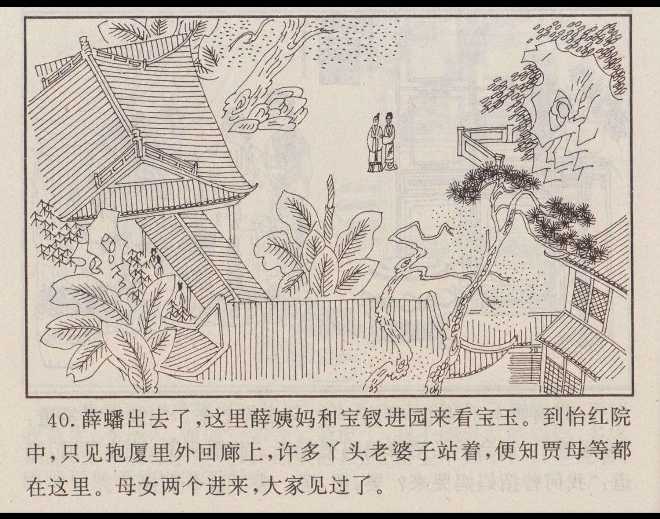 40. 薛蟠出去了，这里薛姨妈和宝钗进园来看宝玉。到怡红院
中，只见抱厦里外回廊上，许多丫头老婆子站着，便知贾母等都
在这里。母女两个进来，大家见过了。